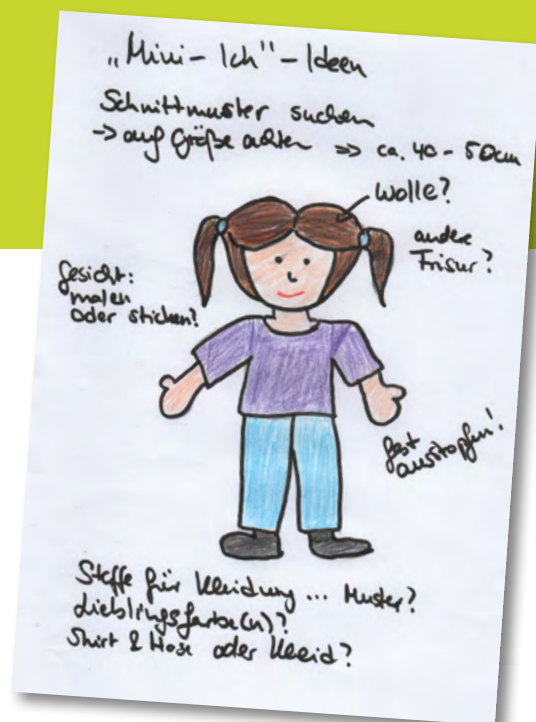 „Mini-Ich"-Ideen
Schnittmuster suchen
-> auf Größe achten => ca. 40 - 50cm
Wolle?
andere
Frisur?
Gesicht:
malen
oder sticken?
fest
ausstopfen!
Stoffe für Kleidung ... Muster?
Lieblingsfarbe(n)?
Shirt & Hose oder Kleid?